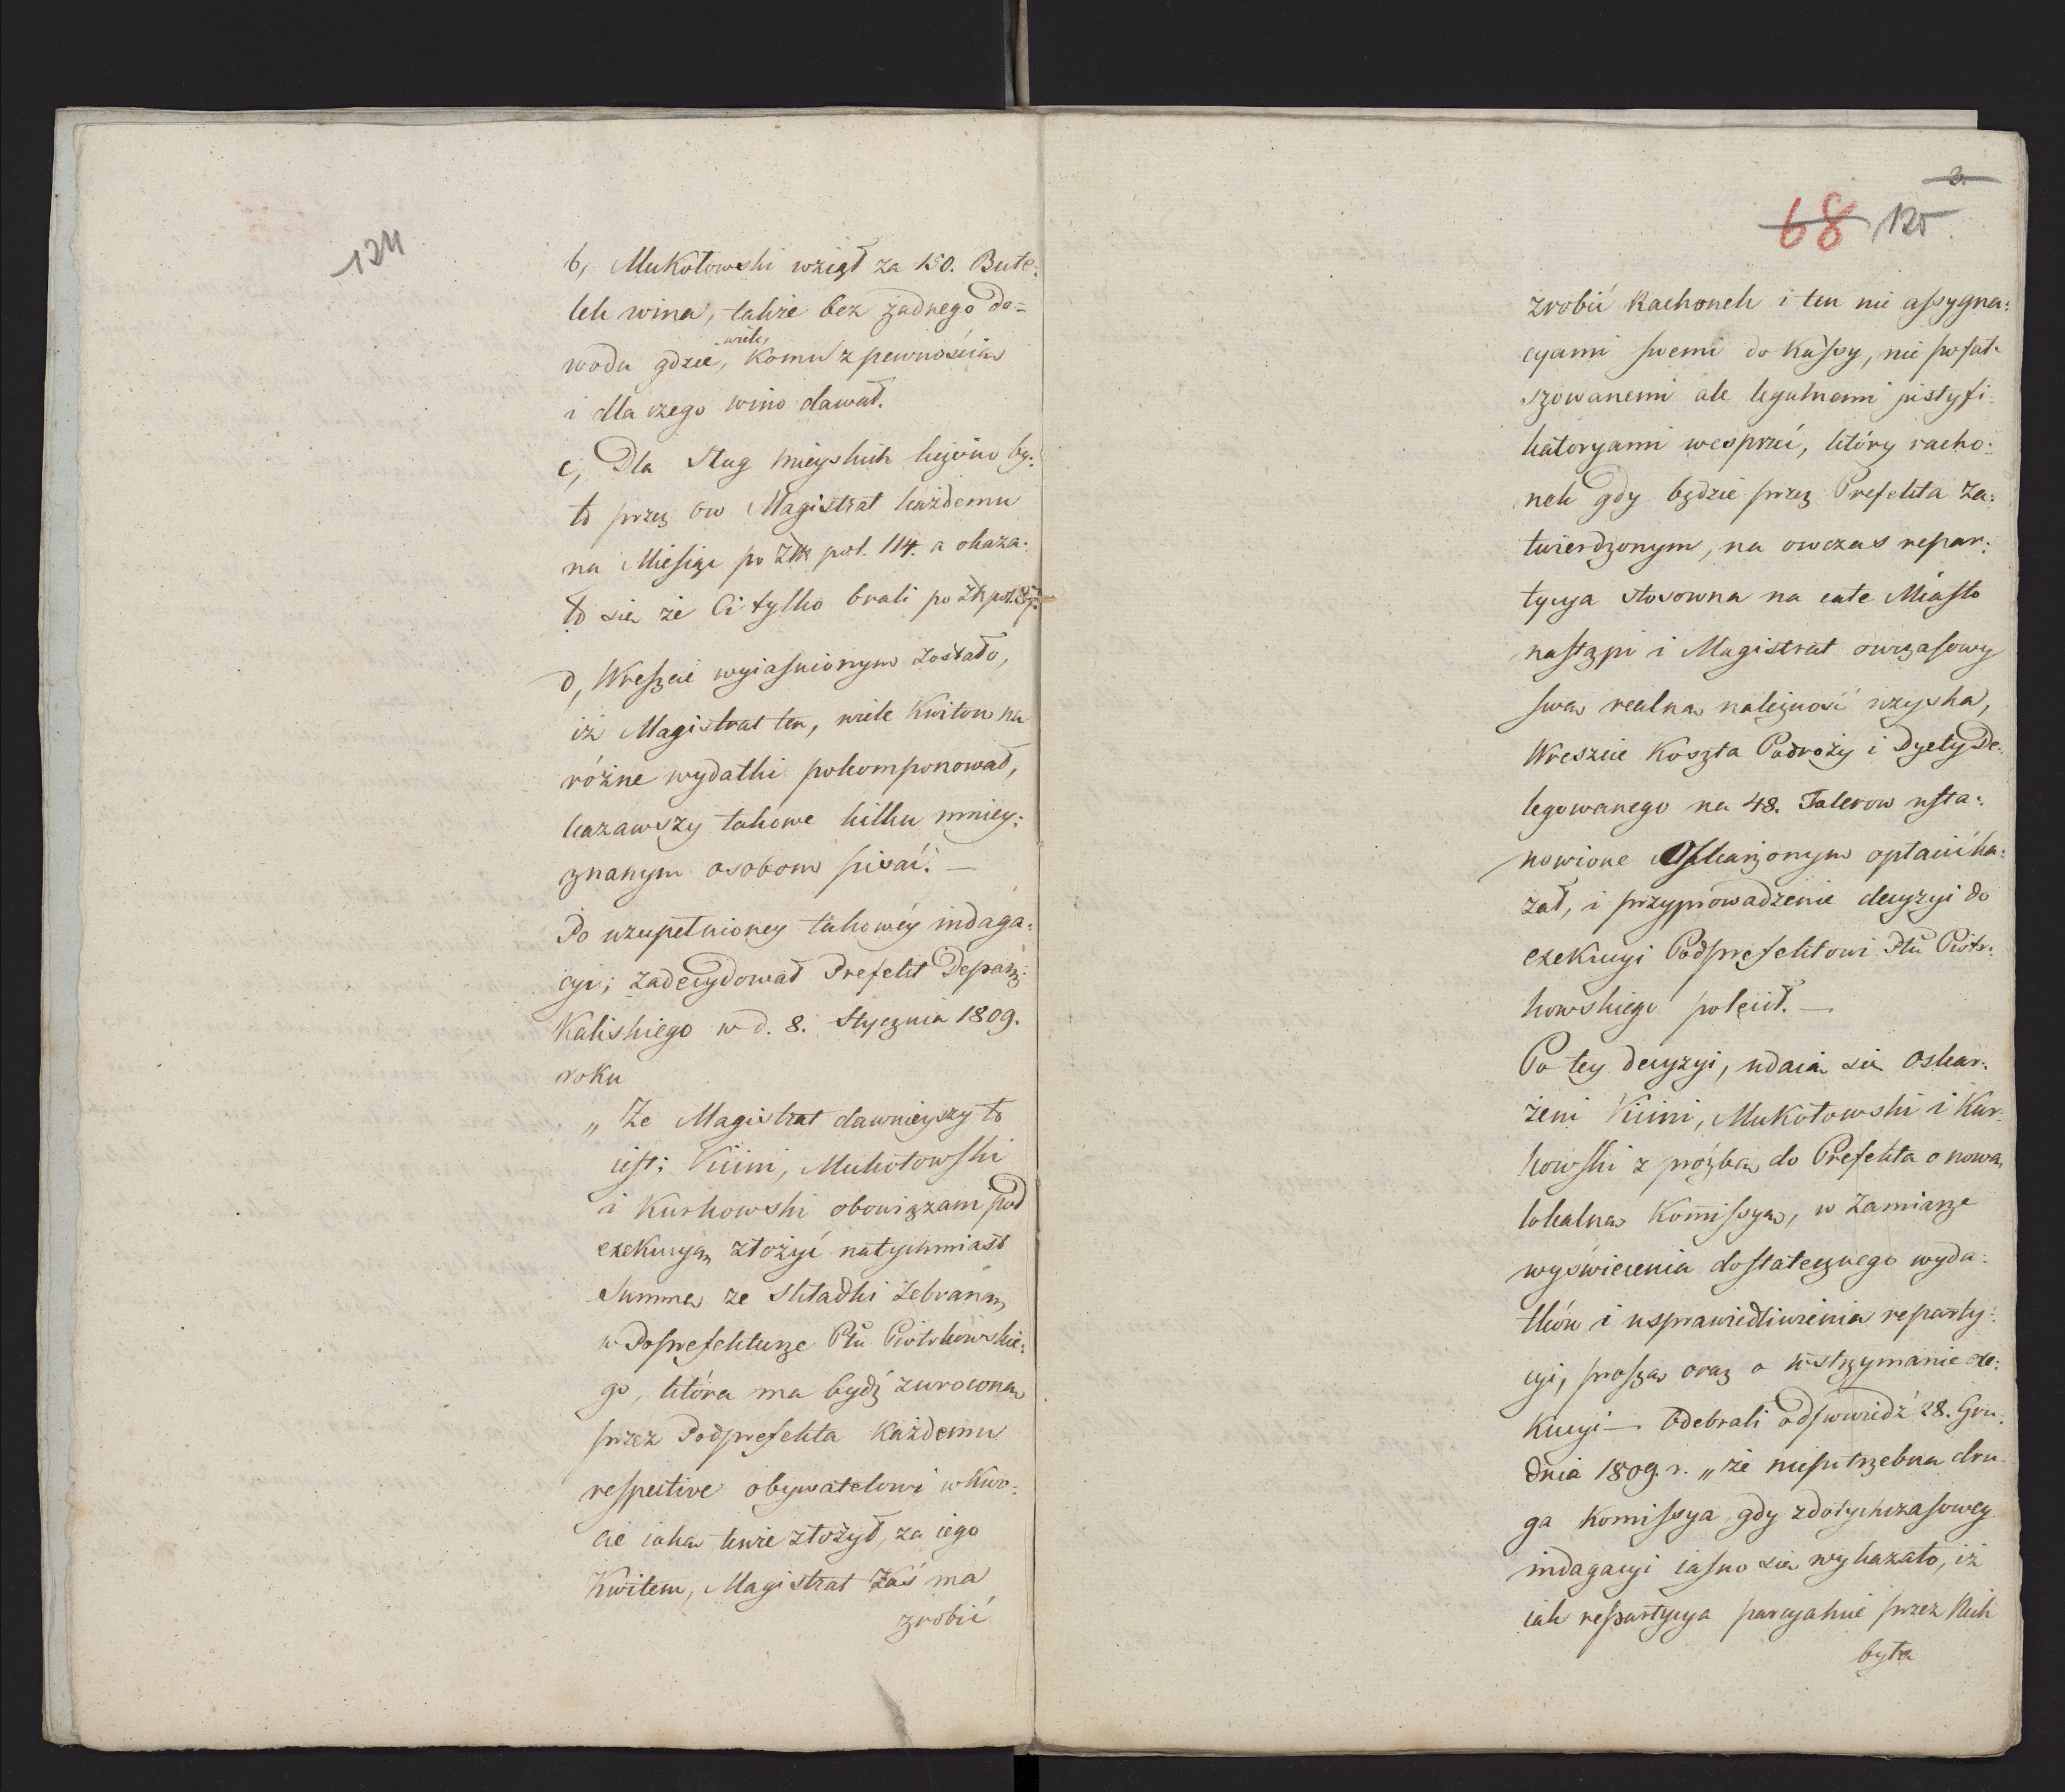 124
b, Mukołowski wziął za 150. Bute:
lek wina, także bez żadnego do=
wodu gdzie, wiele, komu z pewnością
i dla czego wino dawał.
c, Dla Sług mieyskich liczono by:
ło przez ow Magistrat każdemu
na Miesiąc po Złt pol. 114. a okaza:
ło się że Ci tylko brali po Złt pol.
d, Wreszcie wyiasnionym zostało,
iż Magistrat ten, wiele Kwitow na
różne wydatki pokomponował,
kazawszy takowe kilku mniey:
znanym osobom pisać. —
Po uzupełnioney takowéy indaga:
cyi; zadecydował Prefekt Depart:
Kaliskiego w d. 8. Stycznia 1809.
roku
„ Że Magistrat dawnieyszy to
iest; Vicini, Mukołowski
i Kurkowski obowiązani pod
exekucyą złożyć natychmiast
Summę ze Składki zebraną,
w Poprefekturze Pttu Piotrkowskie:
go, która ma bydź zwrocona
przez Podprefekta każdemu
respective obywatelowi w kwo:
cie iaką tenże złożył, za iego
Kwitem, Magistrat zaś ma
zrobić
3.
68 125
zrobić Rachonek i ten nie assygna:
cyami swemi do Kassy, nie posfał:
szowanemi ale legalnemi justyfi:
katoryami wesprzeć, który racho:
nek gdy będzie przez Prefekta za:
twierdzonym, na owczas repar:
tycya stosowna na całe Miasto
nastąpi i Magistrat owczasowy
swą realną należność uzyska,
Wreszcie Koszta Podroży i Dyety De:
legowanego na 48. Talerow usta:
nowione Oskarżonym opłacić ka:
zał, i przyprowadzenie decyzyi do
exekucyi Podprefektowi Pttu Piotr:
kowskiego polecił. —
Po tey decyzyi, udaią się Oskar:
żeni Vicini, Mukołowski i Kur:
kowski z proźbą do Prefekta o nową
lokalną Kommissyą, w zamiarze
wyświecenia dostatecznego wyda:
tków i usprawiedliwienia reparty:
cyi, proszą oraz o wstrzymanie exe:
kucyi — Odebrali odpowiedź 28. Gru:
dnia 1809. r. „że niepotrzebna dru:
ga Komissya, gdy z dotychczasowey
indagacyi iasno się wykazało, iż
iak repartycya parcyalnie przez Nich
była